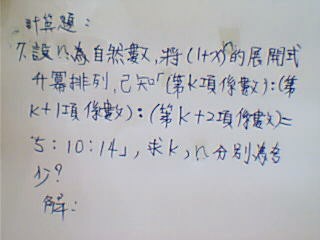 計算題：
7.設n為自然數，將(1+x)ⁿ的展開式
升冪排列，已知「(第k項係數)：(第
k+1項係數)：(第k+2項係數)=
5：10：14」，求k，n分別為多
少？
解：